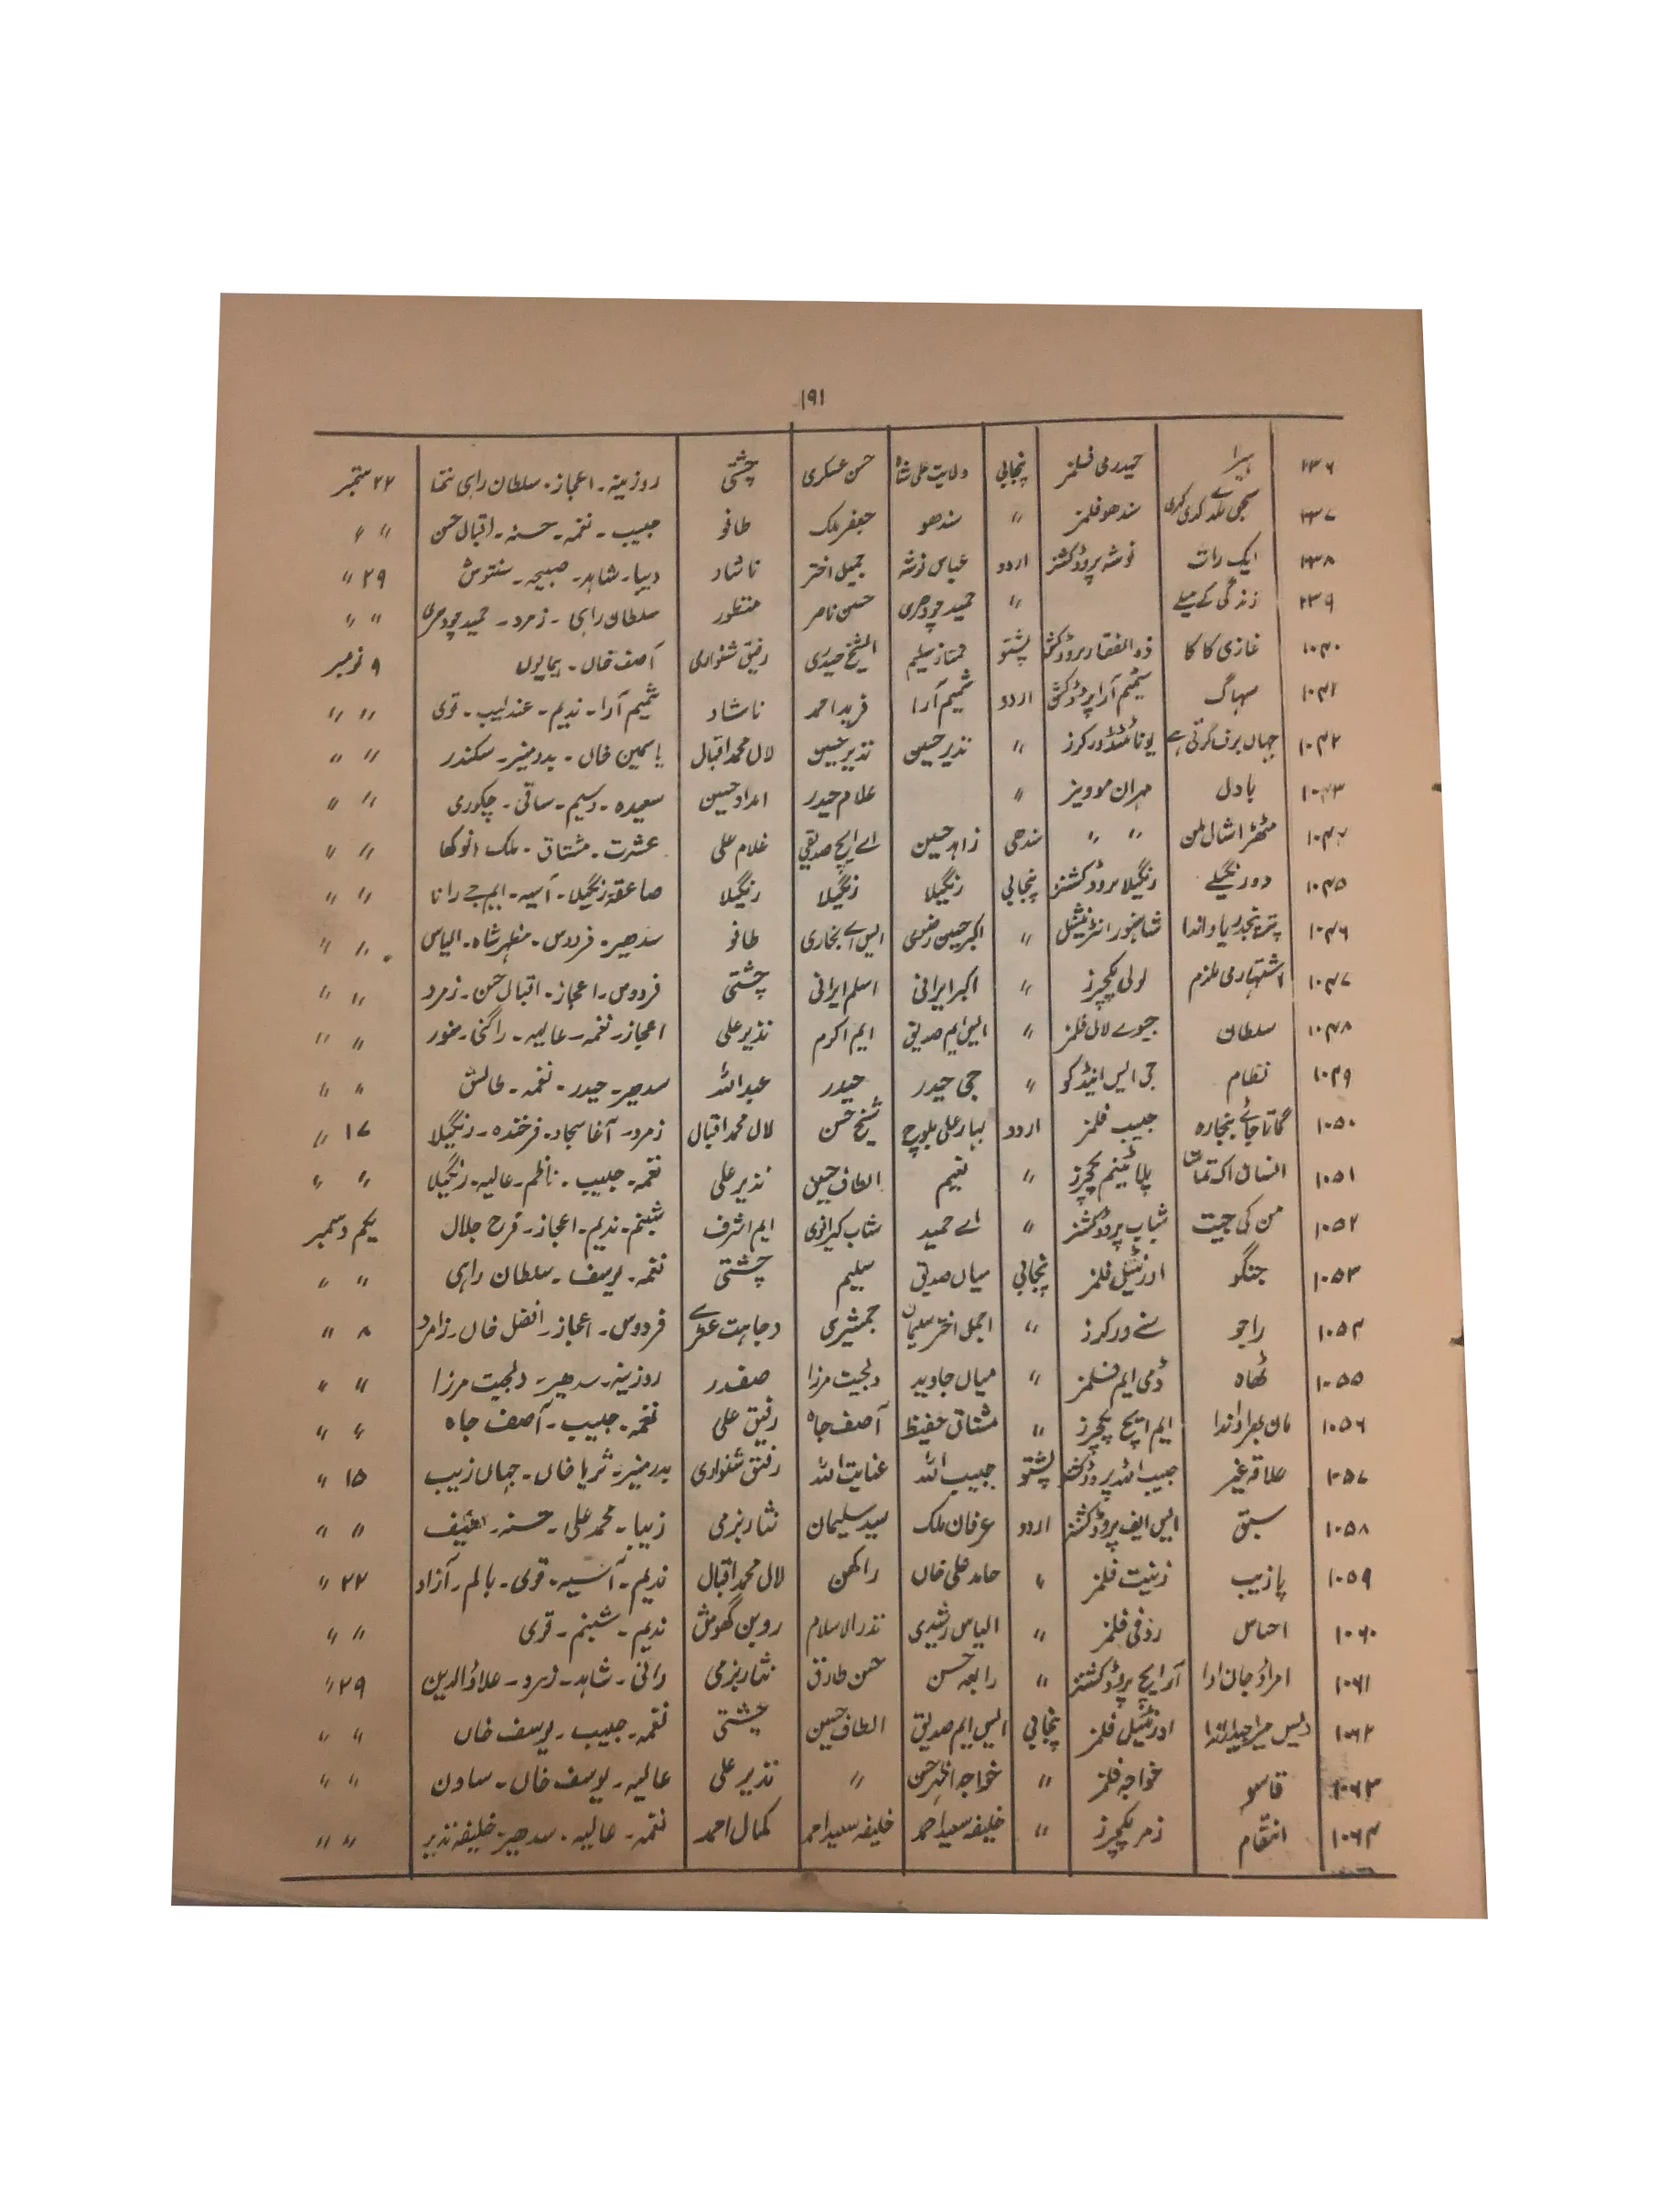 ۱۹۱
۲۳۶ ہیرا حیدری فلمز پنجابی ولایت علی شاہ حسن عسکری چشتی روزینہ۔ اعجاز۔ سلطان راہی تمنا ۲۲ ستمبر
۲۳۷ سجی کدی کدی سندھو فلمز ״ سندھو جعفر ملک طافو حبیب۔ نغمہ۔ حسنہ۔ اقبال حسن ״ ״
۲۳۸ ایک رات نوشہ پروڈکشنز اردو عباس نوشہ جمیل اختر ناشاد دیبا۔ شاہد۔ صبیحہ۔ سنتوش ۲۹ ״
۲۳۹ زندگی کے میلے ״ حمید چودھری حسین ناصر منظور سلطان راہی۔ زمرد۔ حمید چودھری ״ ״
۱۰۴۰ غازی کاکا ذوالفقار پروڈکشن پشتو ممتاز سلیم الشیخ حیدری رفیق شنواری آصف خاں۔ ہمایوں ۹ نومبر
۱۰۴۱ سہاگ شمیم آرا پروڈکشن اردو شمیم آرا فرید احمد ناشاد شمیم آرا۔ ندیم۔ عندلیب۔ قوی ״ ״
۱۰۴۲ جہاں برف گرتی ہے یونائٹڈ ورکرز ״ نذیر حسین نذیر حسین لال محمد اقبال یاسمین خاں۔ بدر منیر۔ سکندر ״ ״
۱۰۴۳ بادل مہران موویز ״ غلام حیدر امداد حسین سعیدہ۔ وسیم۔ ساقی۔ چکوری ״ ״
۱۰۴۴ مٹھڑا شال ملن ״ ״ سندھی زاہد حسین اے ایچ صدیقی غلام علی عشرت۔ مشتاق۔ ملک انوکھا ״ ״
۱۰۴۵ دو رنگیلے رنگیلا پروڈکشنز پنجابی رنگیلا رنگیلا رنگیلا صاعقہ رنگیلا۔ آسیہ۔ ایم جے رانا ״ ״
۱۰۴۶ پتر پنج دریاواں دا شاہنور انٹرنیشنل ״ اکبر حسین رضوی ایس اے بخاری طافو سدھیر۔ فردوس۔ مظہر شاہ۔ الیاس ״ ״
۱۰۴۷ اشتہاری ملزم لولی پکچرز ״ اکبر ایرانی اسلم ایرانی چشتی فردوس۔ اعجاز۔ اقبال حسن۔ زمرد ״ ״
۱۰۴۸ سلطان جیوے لال فلمز ״ ایس ایم صدیق ایم اکرم نذیر علی اعجاز۔ نغمہ۔ عالیہ۔ راگنی۔ منور ״ ״
۱۰۴۹ نظام جی ایس اینڈ کو ״ جی حیدر حیدر عبداللہ سدھیر۔ حیدر۔ نغمہ۔ طالش ״ ״
۱۰۵۰ گاتا جائے بنجارہ حبیب فلمز اردو بہار علی بلوچ شیخ حسن لال محمد اقبال زمرد۔ آغا سجاد۔ فرخندہ۔ رنگیلا ۱۷ ״
۱۰۵۱ انسان اک تماشا پلاٹینم پکچرز ״ نعیم الطاف حسین نذیر علی نغمہ۔ حبیب۔ ناظم۔ عالیہ۔ رنگیلا ״ ״
۱۰۵۲ من کی جیت شباب پروڈکشنز ״ اے حمید شباب کیرانوی ایم اشرف شبنم۔ ندیم۔ اعجاز۔ فرح جلال یکم دسمبر
۱۰۵۳ جنگو اورنٹیل فلمز پنجابی میاں صدیق سلیم چشتی نغمہ۔ یوسف۔ سلطان راہی ״ ״
۱۰۵۴ راجو سنے ورکرز ״ اجمل اختر سلیمان جمشیری وجاہت عطرے فردوس۔ اعجاز۔ افضل خاں۔ زمرد ۸ ״
۱۰۵۵ ٹھاہ ڈی ایم فلمز ״ میاں جاوید دلجیت مرزا صفدر روزینہ۔ سدھیر۔ دلجیت مرزا ״ ״
۱۰۵۶ مان بھراواں دا ایم ایچ پکچرز ״ مشتاق حفیظ آصف جاہ رفیق علی نغمہ۔ حبیب۔ آصف جاہ ״ ״
۱۰۵۷ علاقہ غیر حبیب اللہ پروڈکشن پشتو حبیب اللہ عنایت اللہ رفیق شنواری بدر منیر۔ ثریا خاں۔ جہاں زیب ۱۵ ״
۱۰۵۸ سبق ایس ایف پروڈکشنز اردو عرفان ملک سید سلیمان نثار بزمی زیبا۔ محمد علی۔ حسنہ۔ حنیف ״ ״
۱۰۵۹ پازیب زینت فلمز ״ حامد علی خاں راکھن لال محمد اقبال ندیم۔ آسیہ۔ قوی۔ بالم۔ آزاد ۲۲ ״
۱۰۶۰ احساس روفی فلمز ״ الیاس رشیدی نذر الاسلام روبن گھوش ندیم۔ شبنم۔ قوی ״ ״
۱۰۶۱ امراؤ جان ادا آر ایچ پروڈکشنز ״ رابعہ حسن حسن طارق نثار بزمی رانی۔ شاہد۔ زمرد۔ علاؤالدین ۲۹ ״
۱۰۶۲ دیس میرا جیداراں دا اورنٹیل فلمز پنجابی ایس ایم صدیق الطاف حسین چشتی نغمہ۔ حبیب۔ یوسف خاں ״ ״
۱۰۶۳ قاسو خواجہ فلمز ״ خواجہ اظہر حسن ״ نذیر علی عالیہ۔ یوسف خاں۔ ساون ״ ״
۱۰۶۴ انتقام زمر پکچرز ״ خلیفہ سعید احمد خلیفہ سعید احمد کمال احمد نغمہ۔ عالیہ۔ سدھیر۔ خلیفہ نذیر ״ ״